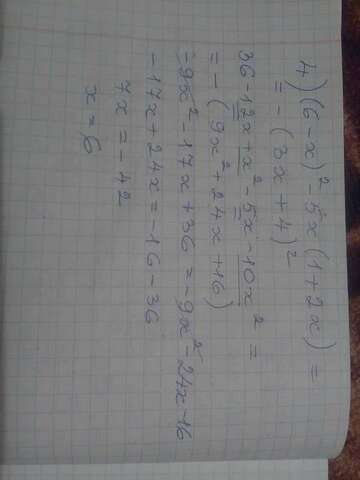 4) (6-x)² - 5x(1+2x) =
= -(3x+4)²
36 - 12x + x² - 5x - 10x² =
= -(9x² + 24x + 16)
-9x² - 17x + 36 = -9x² - 24x - 16
-17x + 24x = -16 - 36
7x = -42
x = 6